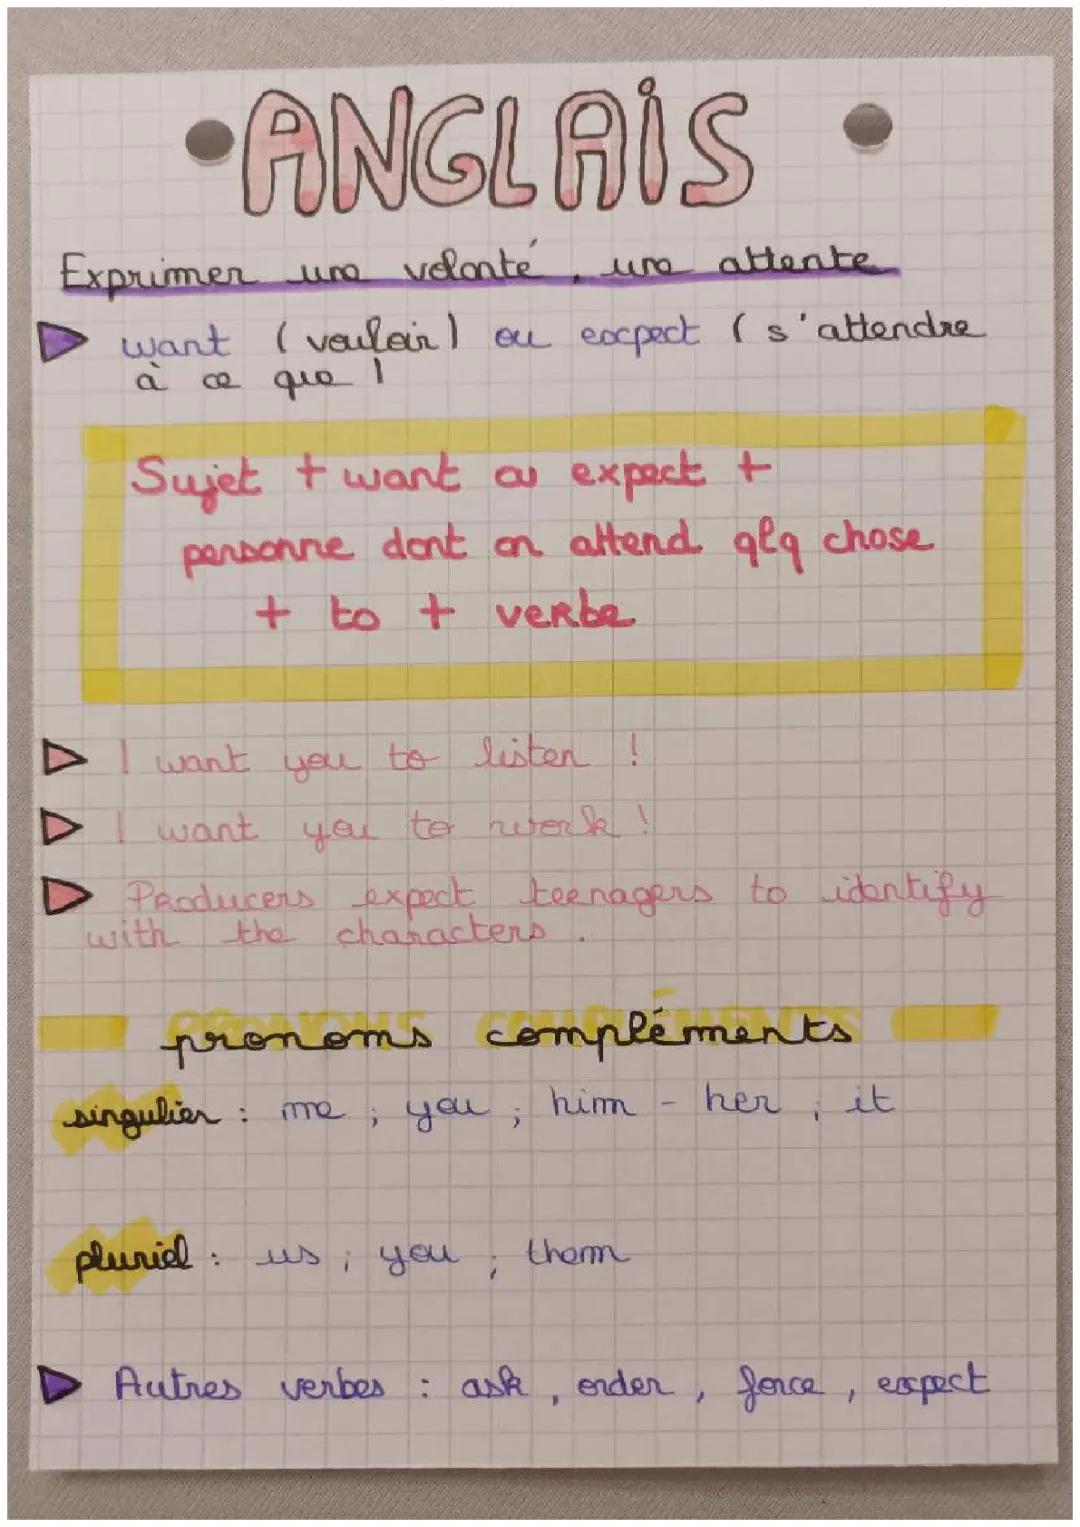 ANGLAIS
Exprimer une volonté, une attente
want (vouloir) ou expect (s'attendre
à ce que)
Sujet + want ou expect +
personne dont on attend qlq chose
+ to + verbe
I want you to listen !
I want you to work !
Producers expect teenagers to identify
with the characters.
pronoms compléments
singulier : me ; you ; him - her ; it
pluriel : us ; you ; them
Autres verbes : ask, order, force, expect